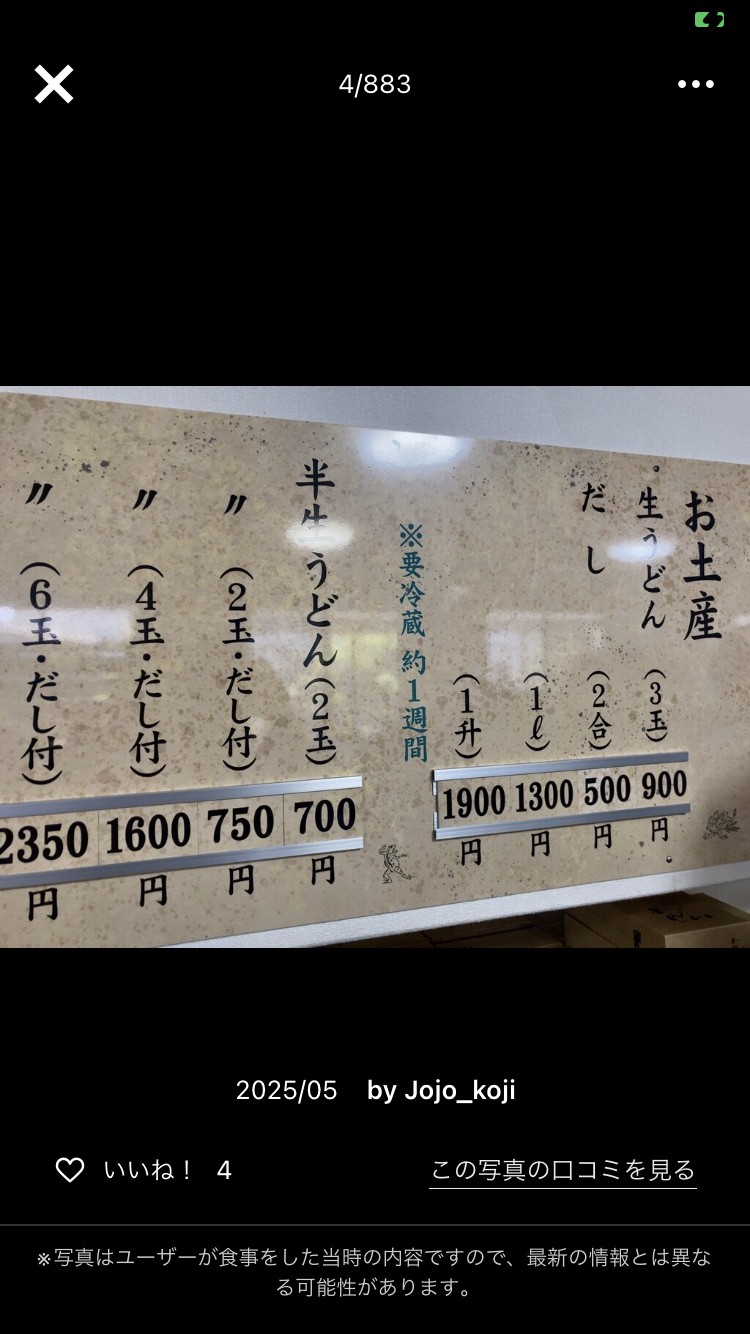 4/883
お土産
生うどん(3玉) 900円
だし(2合) 500円
(1ℓ) 1300円
(1升) 1900円
※要冷蔵 約1週間
半生うどん(2玉) 700円
〃(2玉・だし付) 750円
〃(4玉・だし付) 1600円
〃(6玉・だし付) 2350円
2025/05 by Jojo_koji
いいね! 4
この写真の口コミを見る
※写真はユーザーが食事をした当時の内容ですので、最新の情報とは異な
る可能性があります。